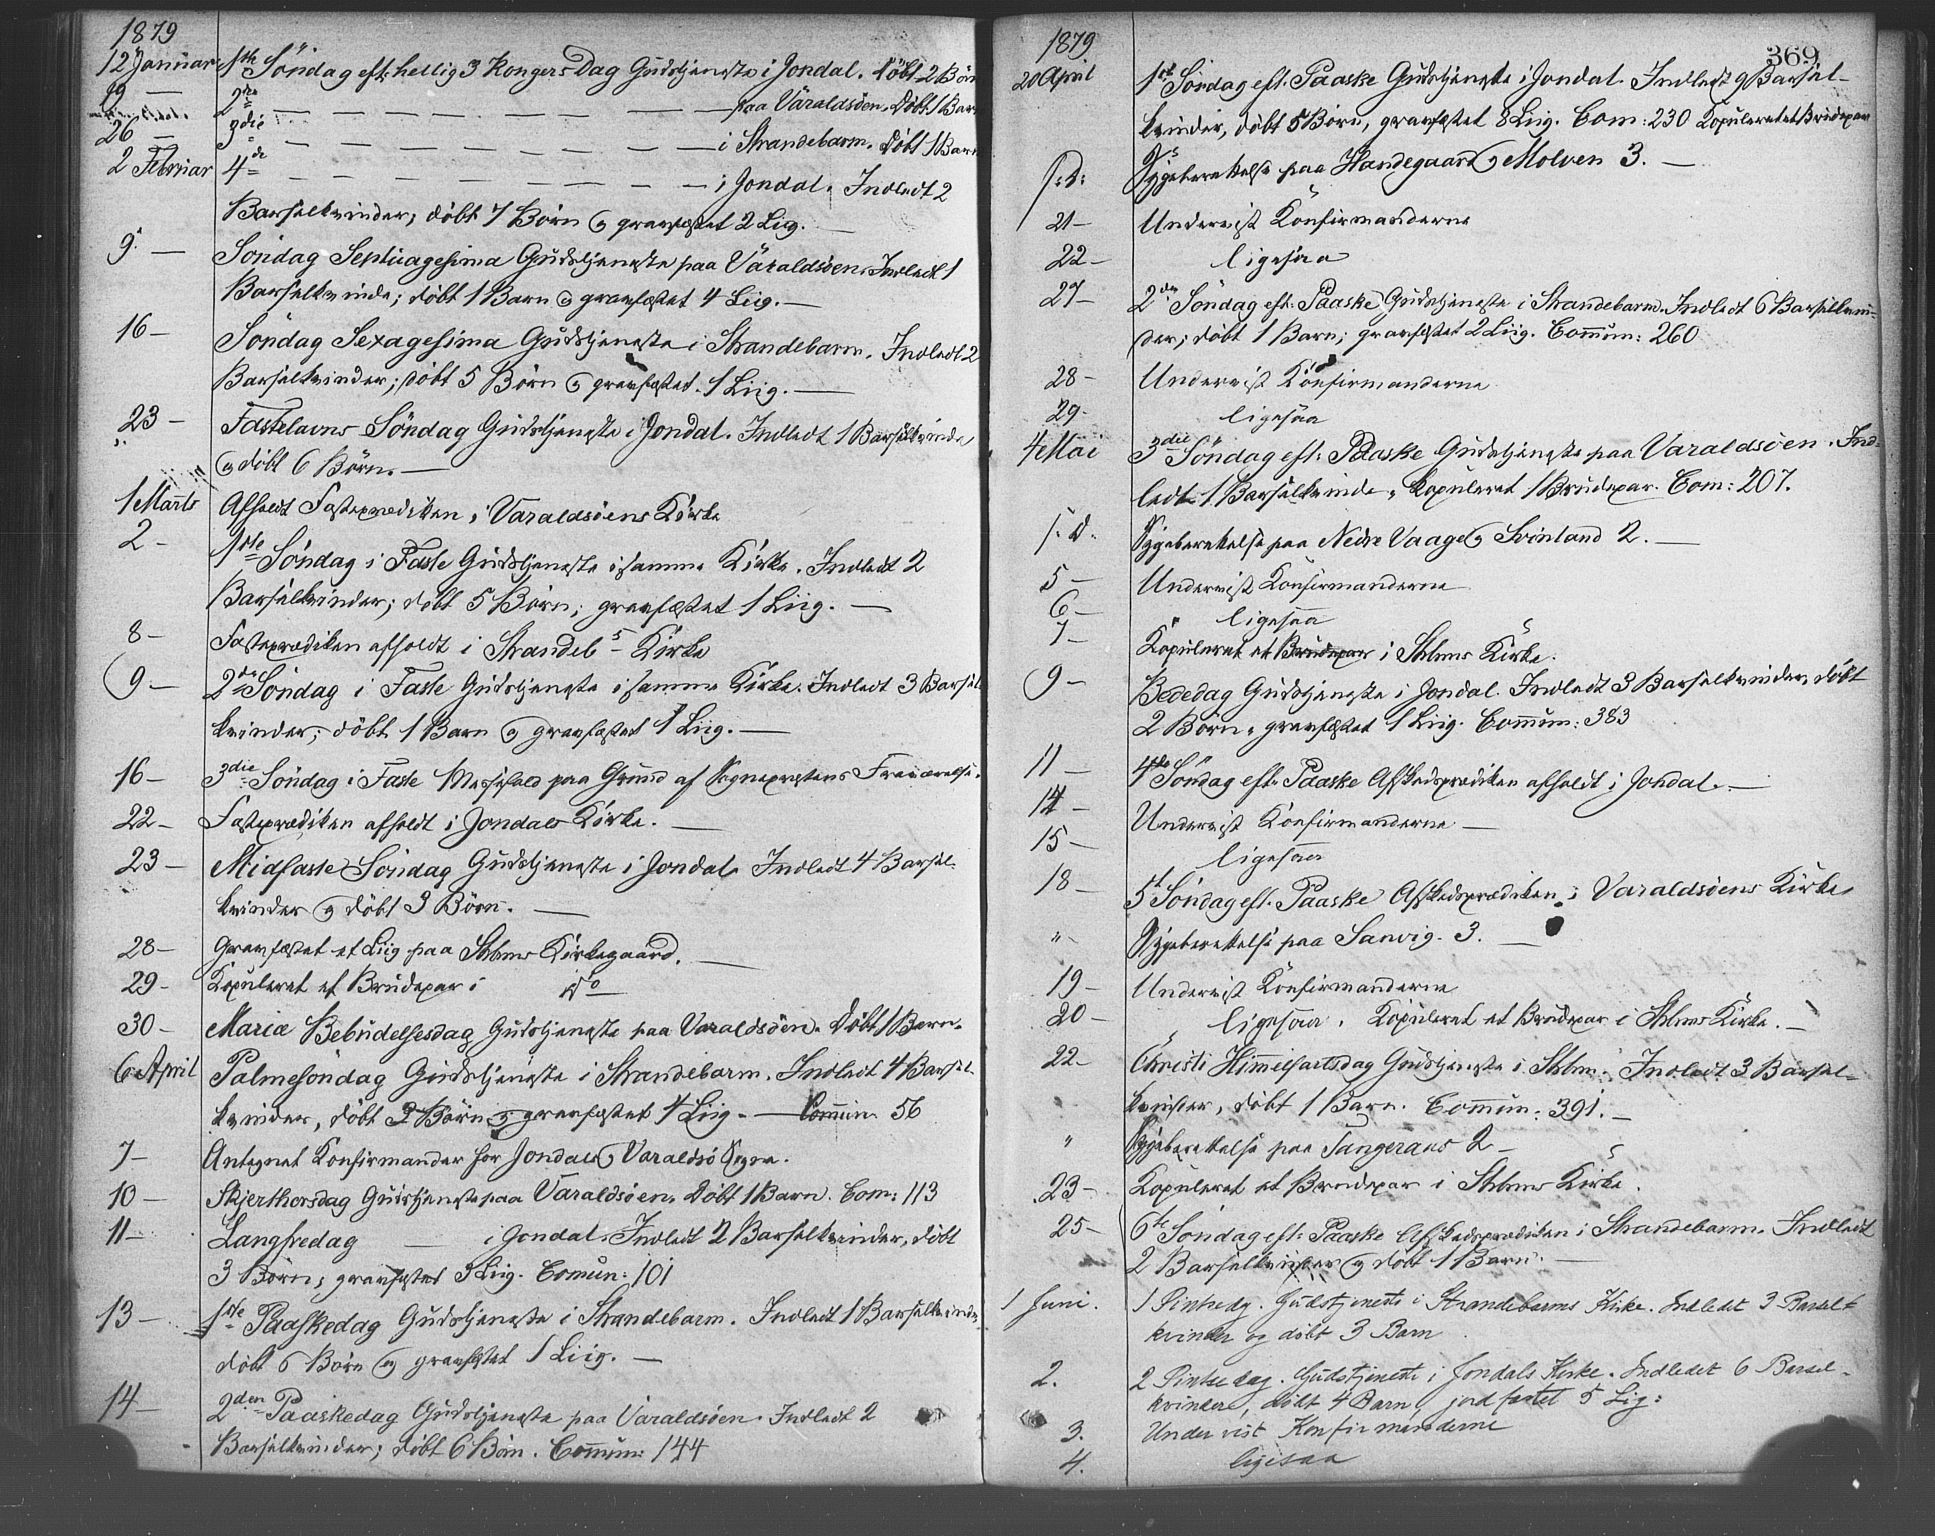 1879
12 Januar 1ste Söndag eft: hellig 3 Konger's Dag Gudstjeneste i Jondal. Döbt 2 Börn
19 — 2den — — — — — — paa Varaldsöen. Döbt 1 Barn
26 — 3die — — — — — — i Strandebarm. Döbt 1 Barn
2 Februar 4de — — — — — — i Jondal. Indledt 2
Barselkvinder, döbt 7 Börn og gravfæstet 2 Liig.
9 — Söndag Septuagesima Gudstjeneste paa Varaldsöen. Indledt 1
Barselkvinde; döbt 1 Barn og gravfæstet 4 Liig. —
16 — Söndag Sexagesima Gudstjeneste i Strandebarm. Indledt 2
Barselkvinder; döbt 5 Börn og gravfæstet 1 Liig. —
23 — Fastelavns Söndag Gudstjeneste i Jondal. Indledt 1 Barselkvinde
og döbt 6 Börn. —
1 Marts Afholdt Fasteprædiken i Varaldsöens Kirke
2 — 1ste Söndag i Faste Gudstjeneste i samme Kirke. Indledt 2
Barselkvinder; döbt 5 Börn; gravfæstet 1 Liig. —
8 — Fasteprædiken afholdt i Strandeb.s Kirke
9 — 2den Söndag i Faste Gudstjeneste i samme Kirke. Indledt 3 Barsel-
kvinder; döbt 1 Barn og gravfæstet 1 Liig. —
16 — 3die Söndag i Faste Messefald paa Grund af Sognepræstens Fraværelse.
22 — Fasteprædiken afholdt i Jondals Kirke. —
23 — Midfaste Söndag Gudstjeneste i Jondal. Indledt 4 Barsel-
kvinder og döbt 3 Börn. —
28 — Gravfæstet et Liig paa Stbms Kirkegaard. —
29 — Kopuleret et Brudepar i do —
30 — Mariæ Bebudelsesdag Gudstjeneste paa Varaldsöen. Döbt 1 Barn.
6 April Palmesöndag Gudstjeneste i Strandebarm. Indledt 4 Barsel-
kvinder, döbt 2 Börn og gravfæstet 4 Liig. — Commun. 56
7 — Antegnet Konfirmander for Jondals og Varaldsö Sogne.
10 — Skjerthorsdag Gudstjeneste paa Varaldsöen. Döbt 1 Barn. Com: 113
11 — Langfredag — i Jondal. Indledt 2 Barselkvinder, döbt
3 Börn; gravfæstet 5 Liig. Comun: 101
13 — 1ste Paaskedag Gudstjeneste i Strandebarm. Indledt 1 Barselkvinde
döbt 6 Börn og gravfæstet 1 Liig. —
14 — 2den Paaskedag Gudstjeneste paa Varaldsöen. Indledt 2
Barselkvinder; döbt 6 Börn. Commun: 144
1879
369
20 April 1ste Söndag eft. Paaske Gudstjeneste i Jondal. Indledt 9 Barsel-
kvinder, döbt 5 Börn, gravfæstet 8 Liig. Com: 230 Kopuleret et Brudepar
s: d: Sygeberettelse paa Handegaard og Molven 3. —
21 — Underviist Konfirmanderne
22 — ligesaa
27 — 2den Söndag eft: Paaske Gudstjeneste i Strandebarm. Indledt 6 Barselkvin-
der; döbt 1 Barn; gravfæstet 2 Liig. Commun: 260
28 — Underviist Konfirmanderne
29 — ligesaa
4 Mai 3die Söndag eft: Paaske Gudstjeneste paa Varaldsöen. Ind-
ledt 1 Barselkvinde, Kopuleret 1 Brudepar. Com: 207.
s. d. Sygeberettelse paa Nedre Vaage og Svinland 2. —
5 — Underviist Konfirmanderne
6 — ligesaa
7 — Kopuleret et Brudepar i Stbms Kirke.
9 — Bededag Gudstjeneste i Jondal. Indledt 3 Barselkvinder, döbt
2 Börn, gravfæstet 1 Liig. Commun: 383
11 — 4de Söndag eft. Paaske Afskedsprædiken afholdt i Jondal. —
14 — Underviist Konfirmanderne —
15 — ligesaa
18 — 5te Söndag eft. Paaske Afskedsprædiken i Varaldsöens Kirke
" Sygeberettelse paa Sanvig. 3. —
19 — Underviist Konfirmanderne
20 — ligesaa. Kopuleret et Brudepar i Stbms Kirke. —
22 — Christi Himmelfartsdag Gudstjeneste i Stbm. Indledt 3 Barsel-
kvinder, döbt 1 Barn. Commun: 391. —
" Sygeberettelse paa Tangeraas 2 —
23 — Kopuleret et Brudepar i Stbms Kirke.
25 — 6te Söndag eft: Paaske Afskedsprædiken i Strandebarm. Indledt
2 Barselkvinder og döbt 1 Barn. —
1 Juni. 1 Pintsedg. Gudstjeneste i Strandebarms Kirke. Indledet 3 Barsel-
kvinder og döbt 3 Barn
2. 2 Pintsedag. Gudstjeneste i Jondals Kirke. Indledet 6 Barsel-
kvinder, döbt 4 Barn, jordfæstet 5 Lig:
3. Undervist Konfirmanderne
4. ligesaa